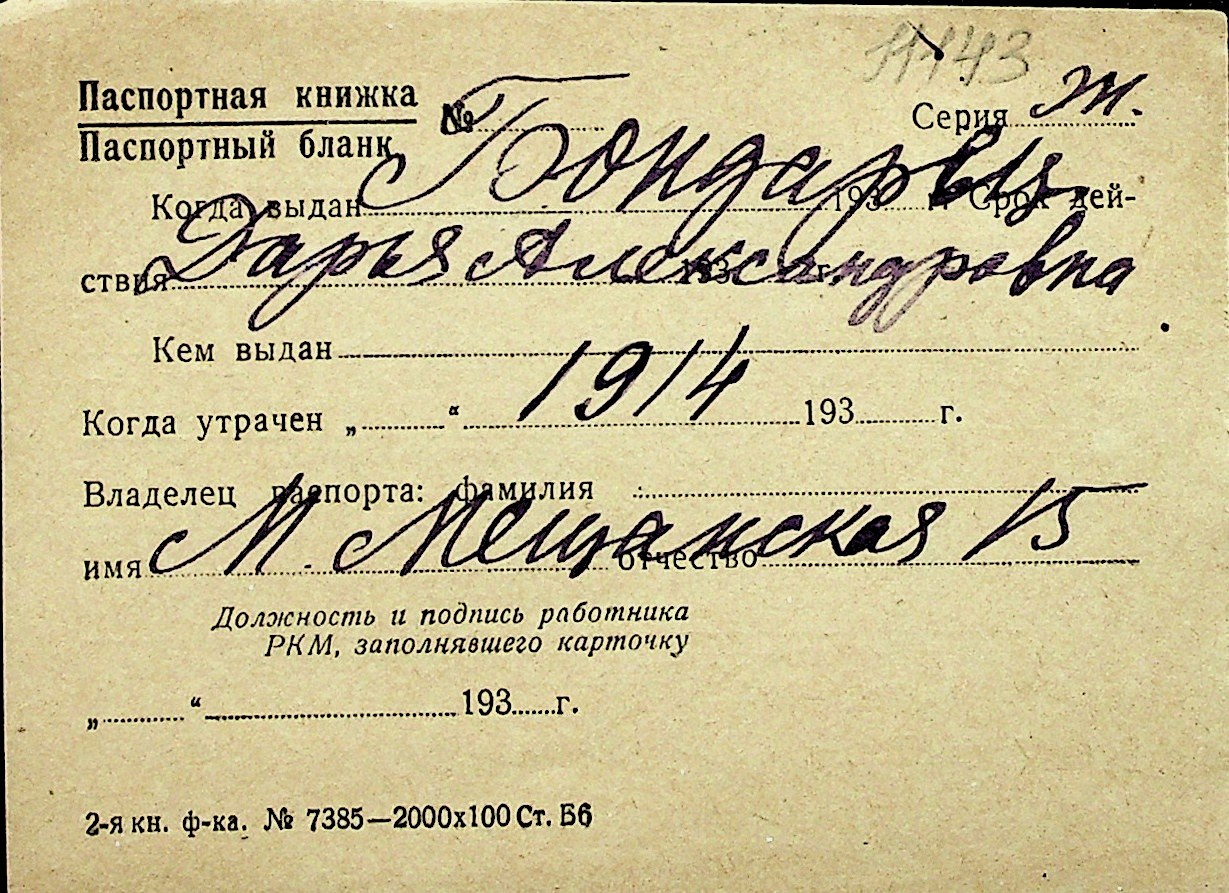 11143
Паспортная книжка № Серия т.
Паспортный бланк
Бондарец
Когда выдан 193 г. Срок дей-
Дарья Александровна
ствия 193 г.
Кем выдан
1914
Когда утрачен „ “ 193 г.
Владелец паспорта: фамилия
М. Мещанская 15
имя отчество
Должность и подпись работника
РКМ, заполнявшего карточку
„ “ 193 г.
2-я кн. ф-ка. № 7385—2000х100 Ст. Б6